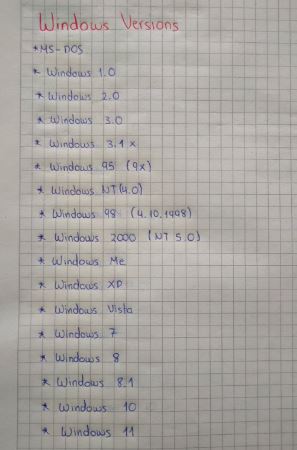 Windows Versions
*MS-DOS
* Windows 1.0
* Windows 2.0
* Windows 3.0
* Windows 3.1x
* Windows 95 (9x)
* Windows NT(4.0)
* Windows 98 (4.10.1998)
* Windows 2000 (NT 5.0)
* Windows Me
* Windows XP
* Windows Vista
* Windows 7
* Windows 8
* Windows 8.1
* Windows 10
* Windows 11